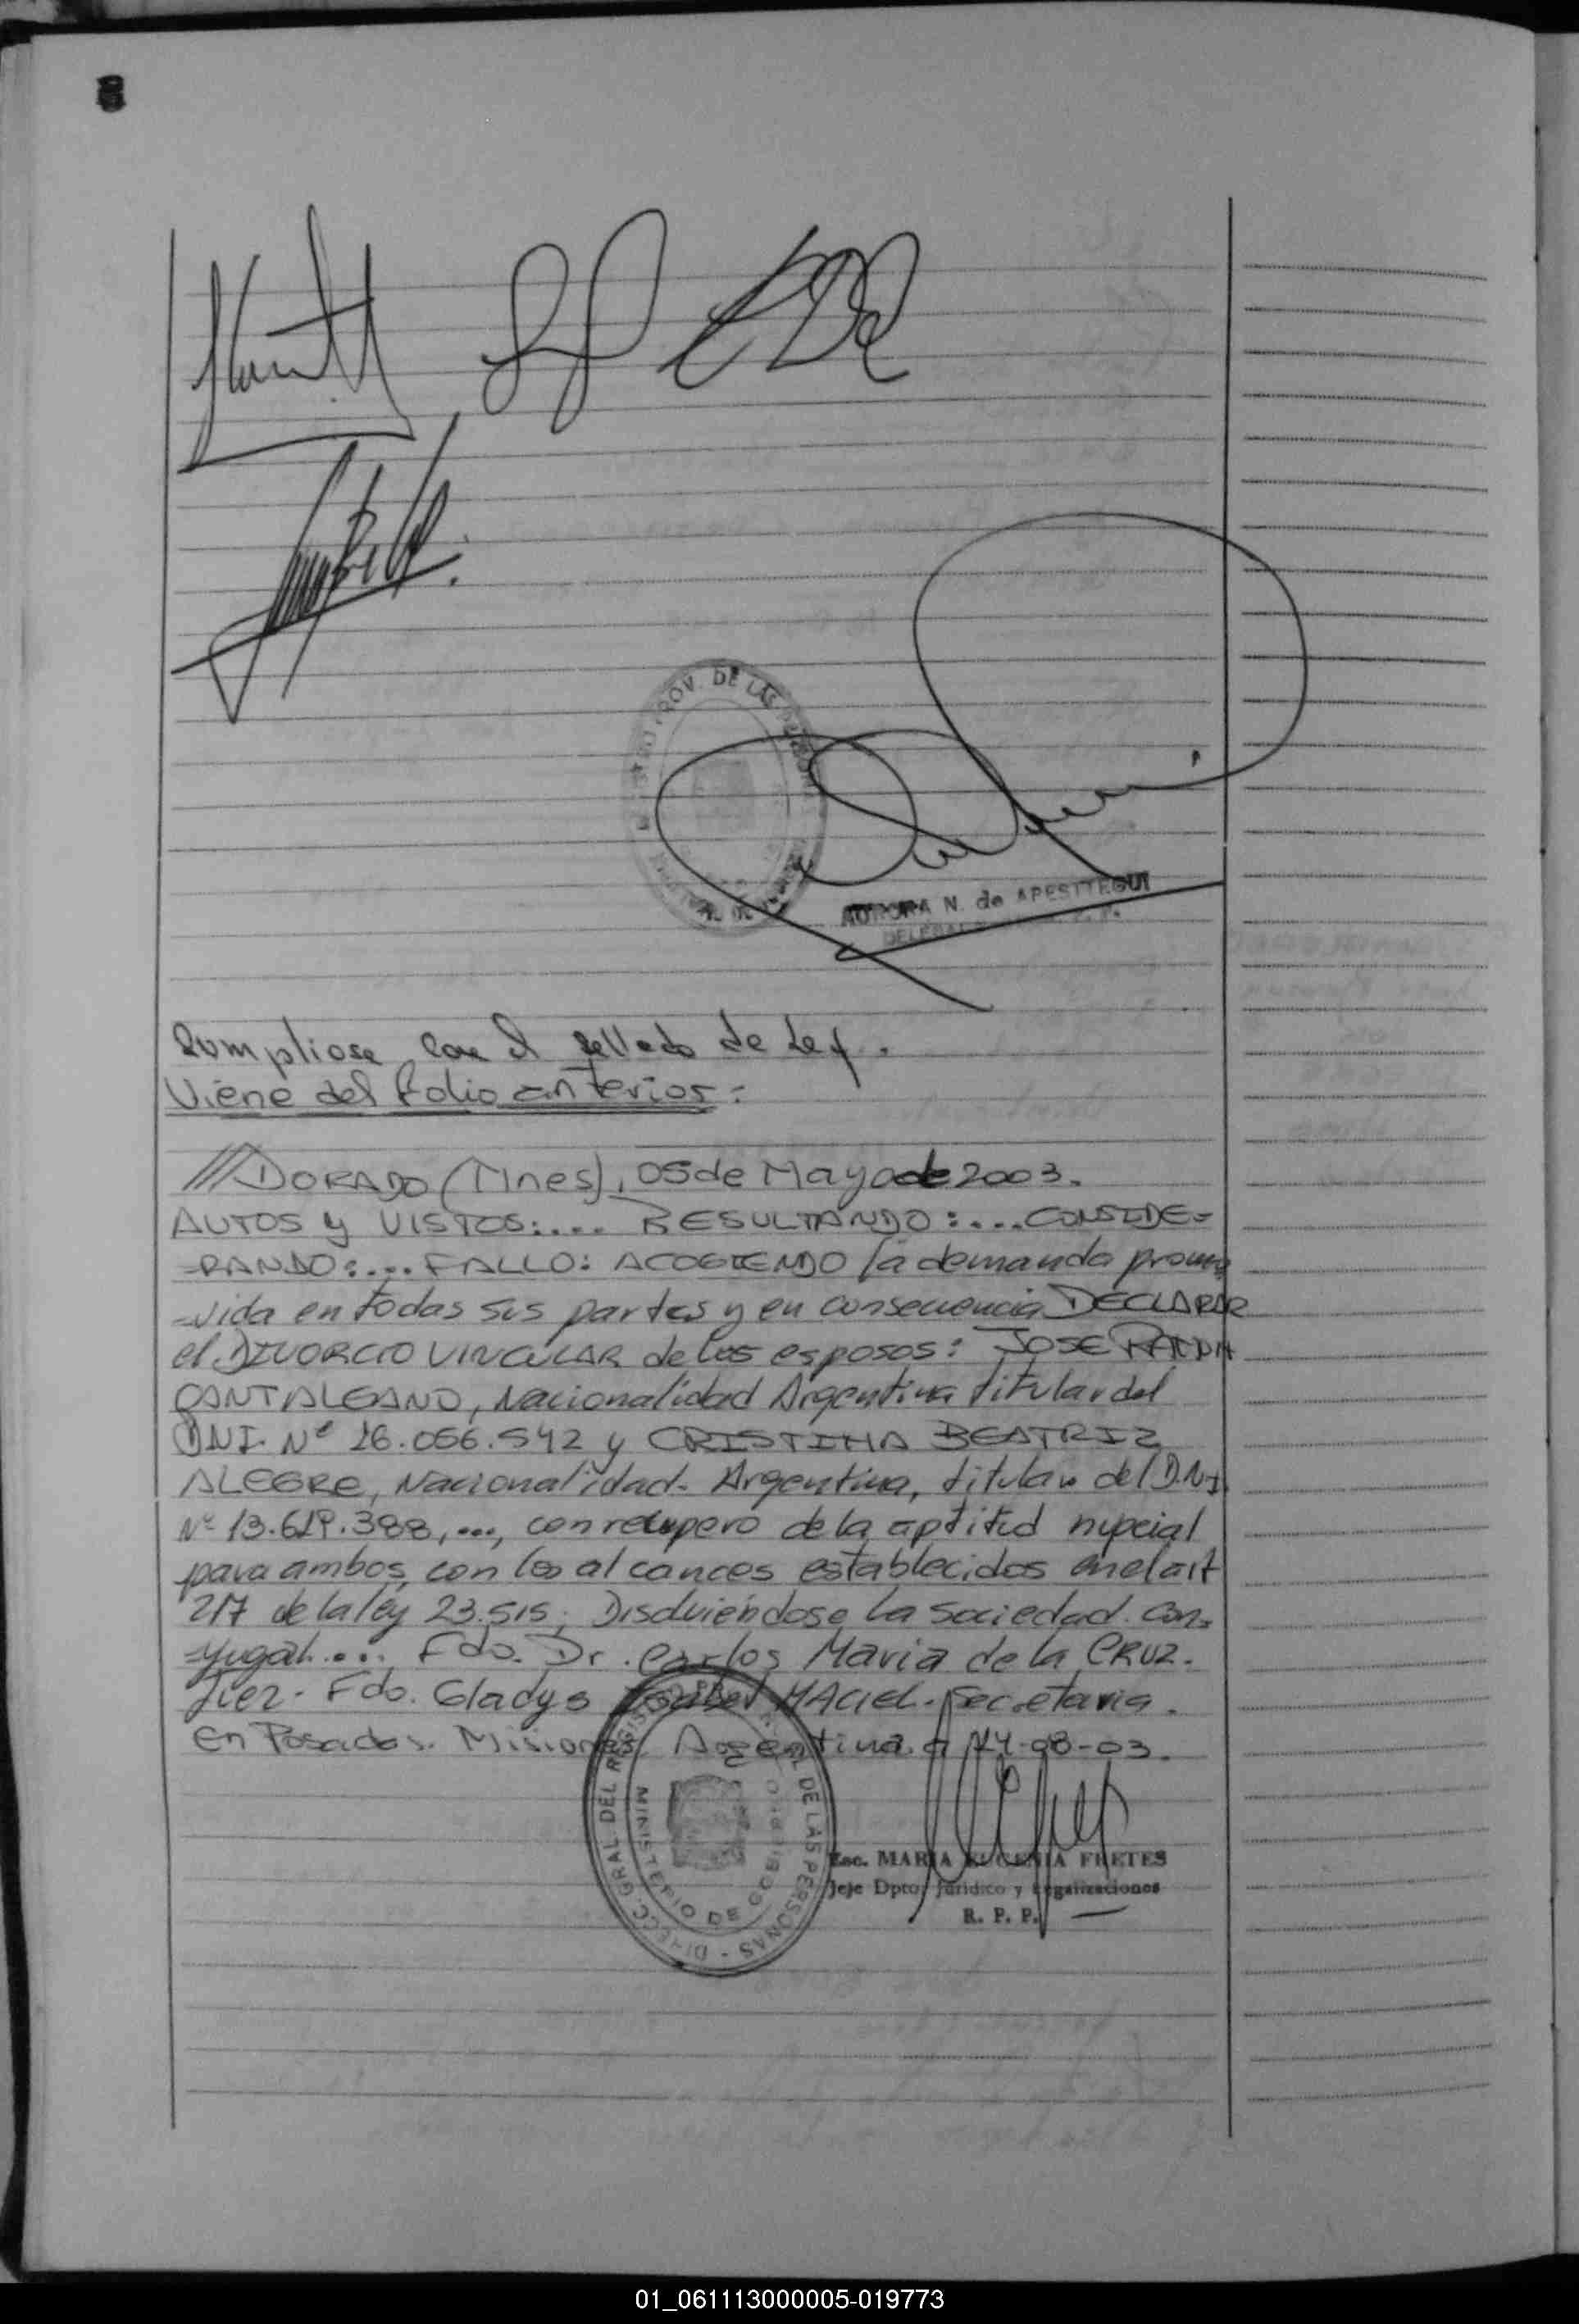 ROV. DE LAS
AURORA N. de APESTTEGUI
Cumpliose con el sellado de Ley.
Viene del folio anterior:
///DORADO (Mnes), 05 de Mayo de 2003.
AUTOS y VISTOS:.... RESULTANDO:....CONSIDE=
=RANDO:.... FALLO: ACOGIENDO la demanda promo
=vida en todas sus partes y en consecuencia DECLARAR
el DIVORCIO VINCULAR de los esposos: JOSE RAMON
CANTALEANO, Nacionalidad Argentina titular del
DNI. Nº 16.056.542 y CRISTINA BEATRIZ
ALEGRE, Nacionalidad- Argentina, titular del D.N.I
Nº 13.619.388,..., con recupero de la aptitud nupcial
para ambos, con los alcances establecidos en el art
217 de la ley 23.515; Disolviéndose la Sociedad Con=
=yugal.... Fdo. Dr. Carlos Maria de la CRUZ.
Juez- Fdo. Gladys Isabel MACIEL- Secretaria.
En Posadas. Misiones Argentina. a 14-08-03.
DIRECC. GRAL DEL REGISTRO DE LAS PERSONAS -
MINISTERIO DE GOBIERNO
Esc. MARIA EUGENIA FRETES
Jefe Dpto. Jurídico y Legalizaciones
R. P. P.
01_061113000005-019773